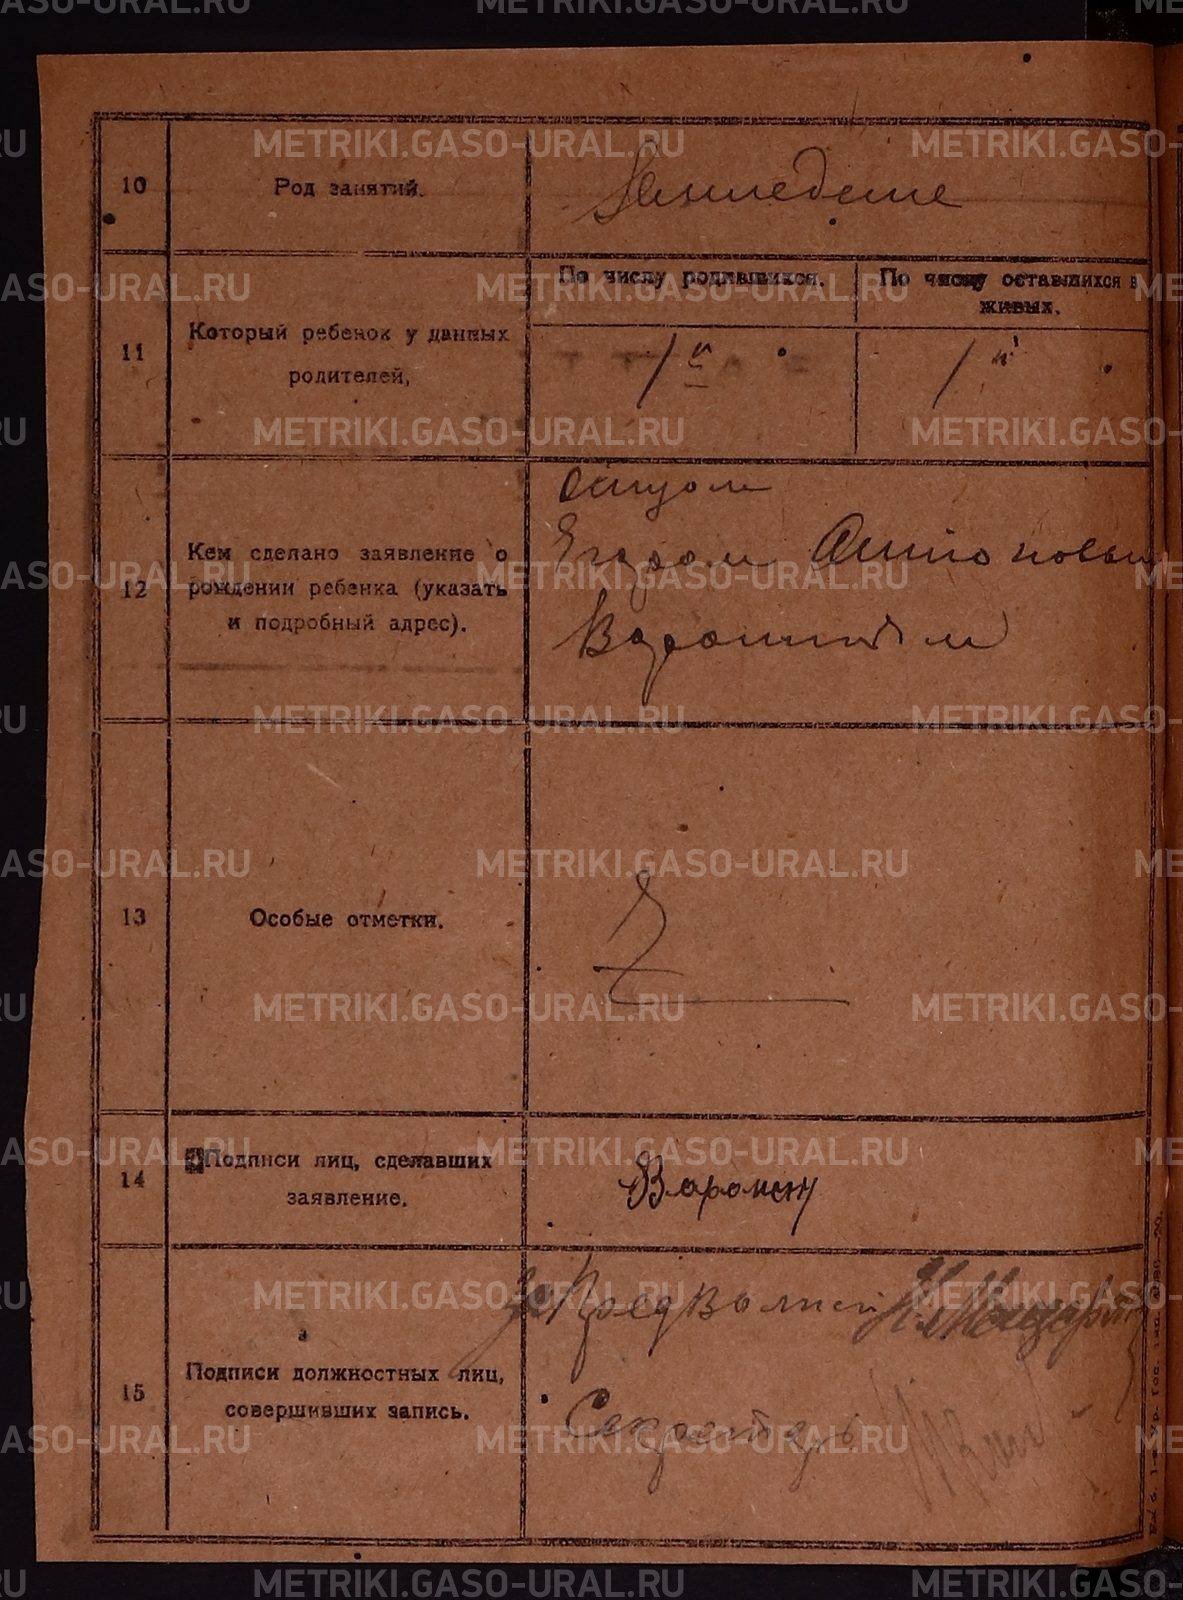 METRIKI.GASO-URAL.RU
10
Род занятий.
11
Который ребенок у данных
родителей.
По числу родившихся.
По числу оставшихся в
живых.
1й
1й
12
Кем сделано заявление о
рождении ребенка (указать
и подробный адрес).
Отцом
Егором Антоновым
13
Особые отметки.
14
Подписи лиц, сделавших
заявление.
15
Подписи должностных лиц,
совершивших запись.
За Пред
Секретарь